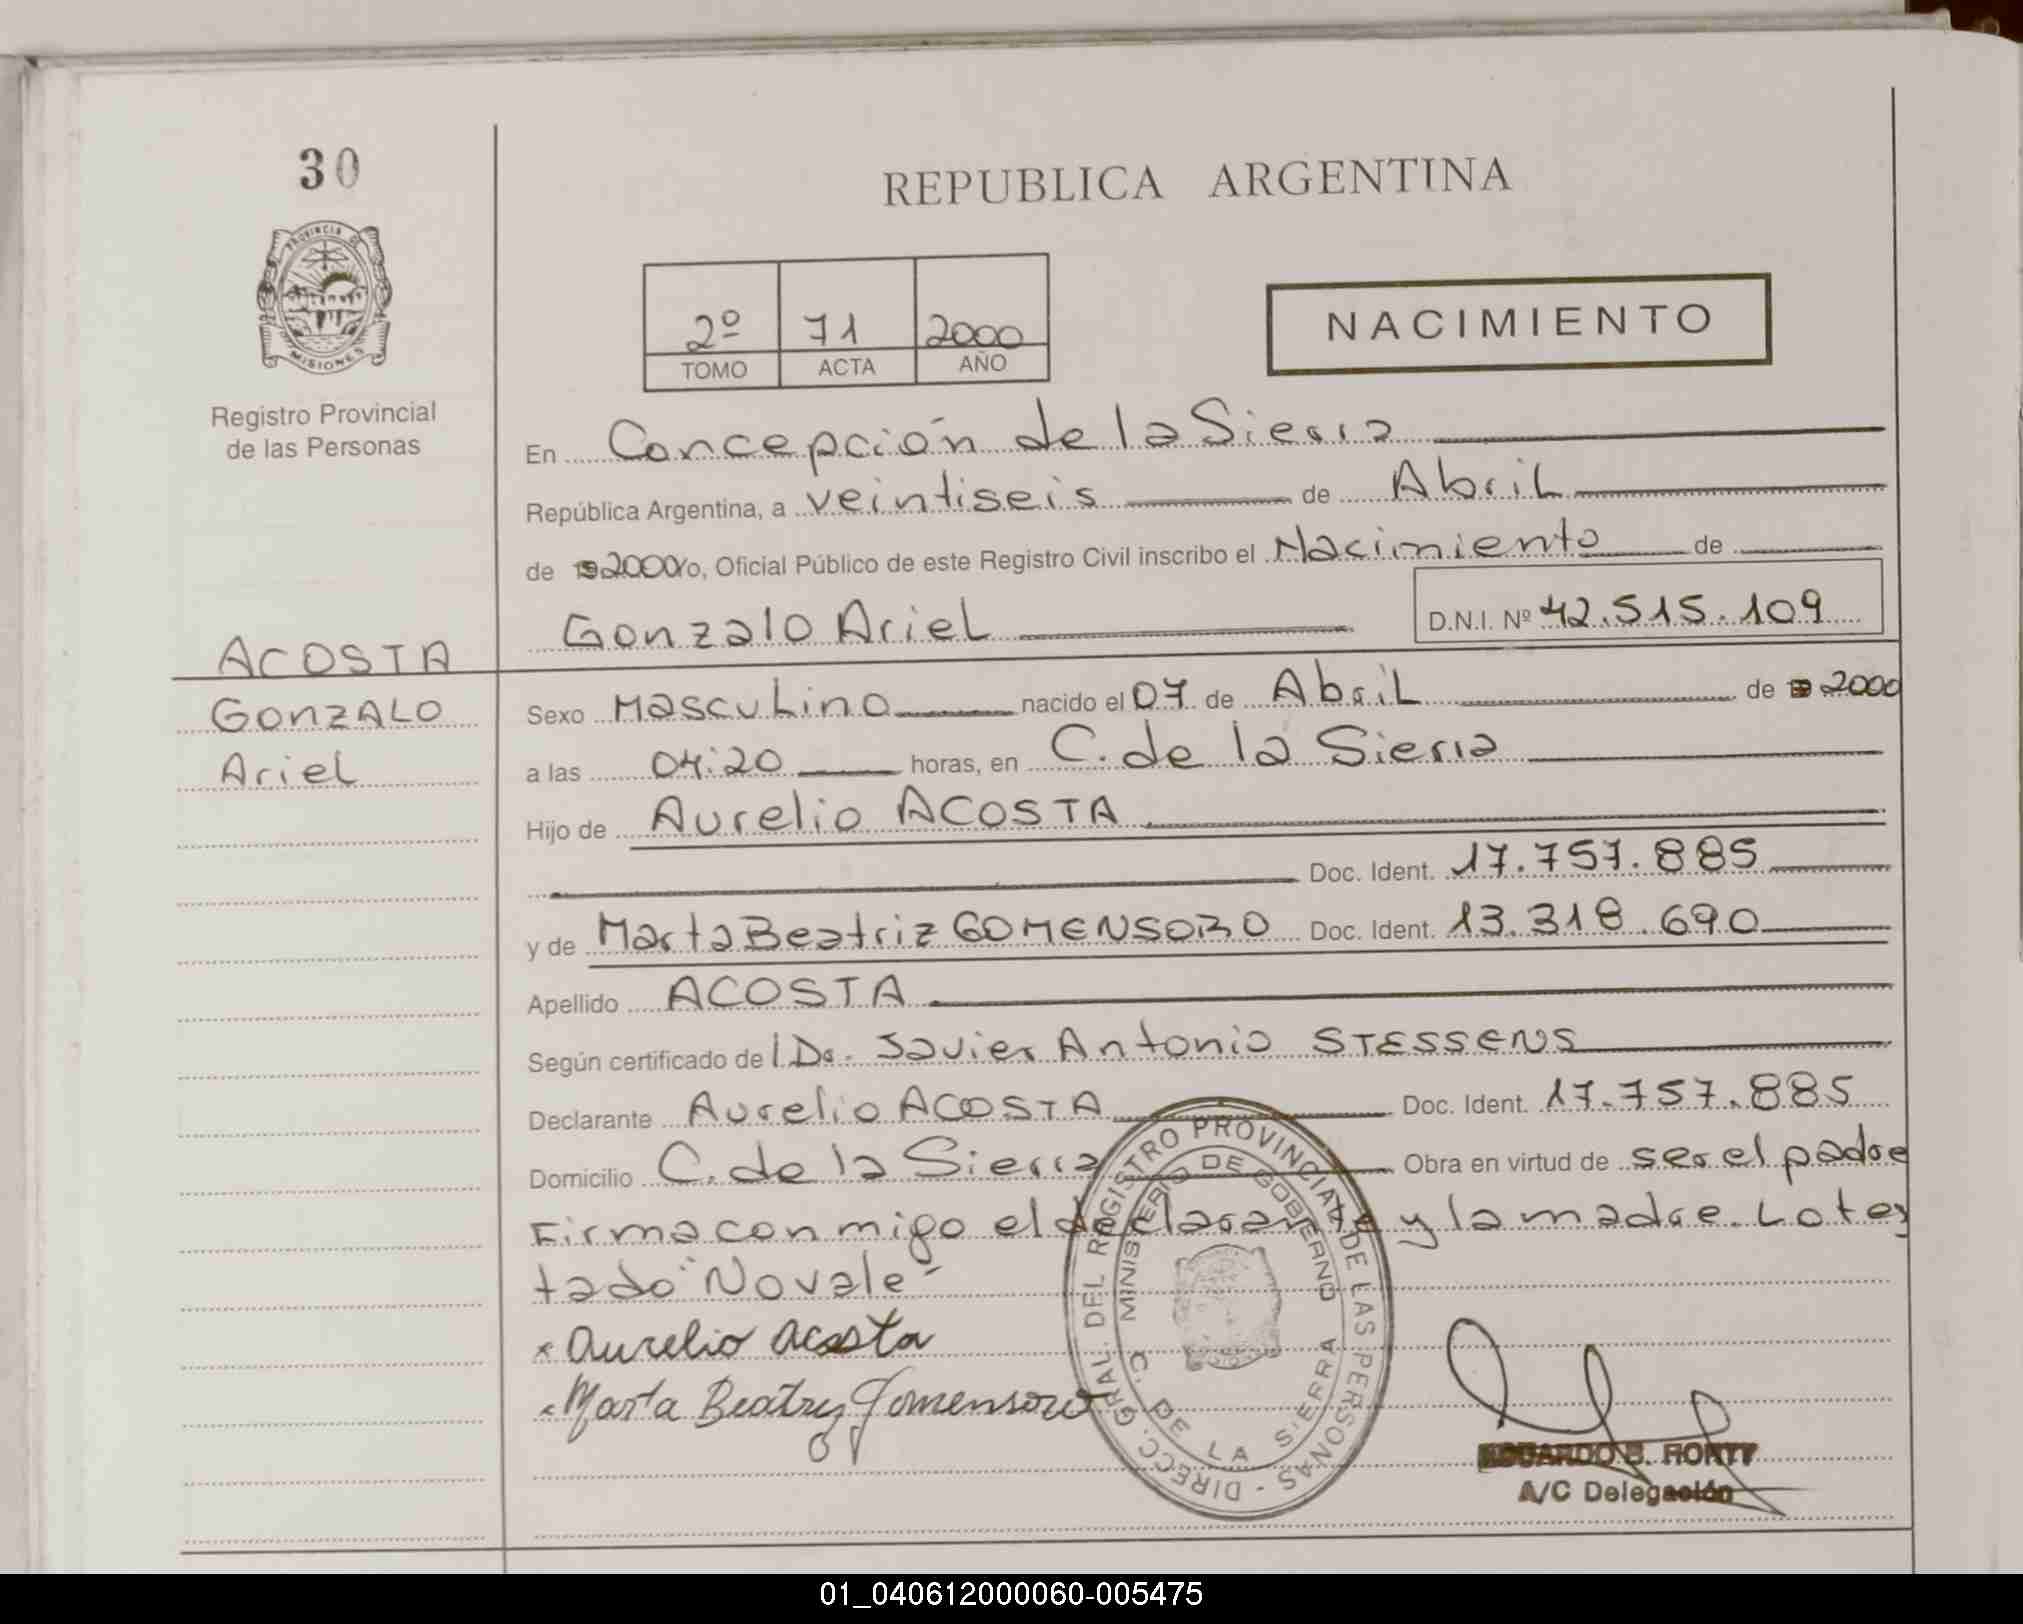 30
REPUBLICA ARGENTINA
PROVINCIA DE
MISIONES
2º 71 2000
TOMO ACTA AÑO
NACIMIENTO
Registro Provincial
de las Personas
En Concepción de la Sierra
República Argentina, a veintiseis de Abril
de 2000 Yo, Oficial Público de este Registro Civil inscribo el Nacimiento de
Gonzalo Ariel D.N.I. Nº 42.515.109
ACOSTA
GONZALO
Ariel
Sexo Masculino nacido el 07 de Abril de 2000
a las 04:20 horas, en C. de la Sierra
Hijo de Aurelio ACOSTA
Doc. Ident. 17.757.885
y de Marta Beatriz GOMENSORO Doc. Ident. 13.318.690
Apellido ACOSTA
Según certificado del Dr. Javier Antonio STESSENS
Declarante Aurelio ACOSTA Doc. Ident. 17.757.885
Domicilio C. de la Sierra Obra en virtud de ser el padre
Firma conmigo el declarante y la madre. Lo tes
tado "No vale"
Aurelio Acosta
Marta Beatriz Gomensoro
DIRECC. GRAL. DEL REGISTRO PROVINCIAL DE LAS PERSONAS -
MINISTERIO DE GOBIERNO
C. DE LA SIERRA
EDUARDO B.
A/C Delegación
01_040612000060-005475